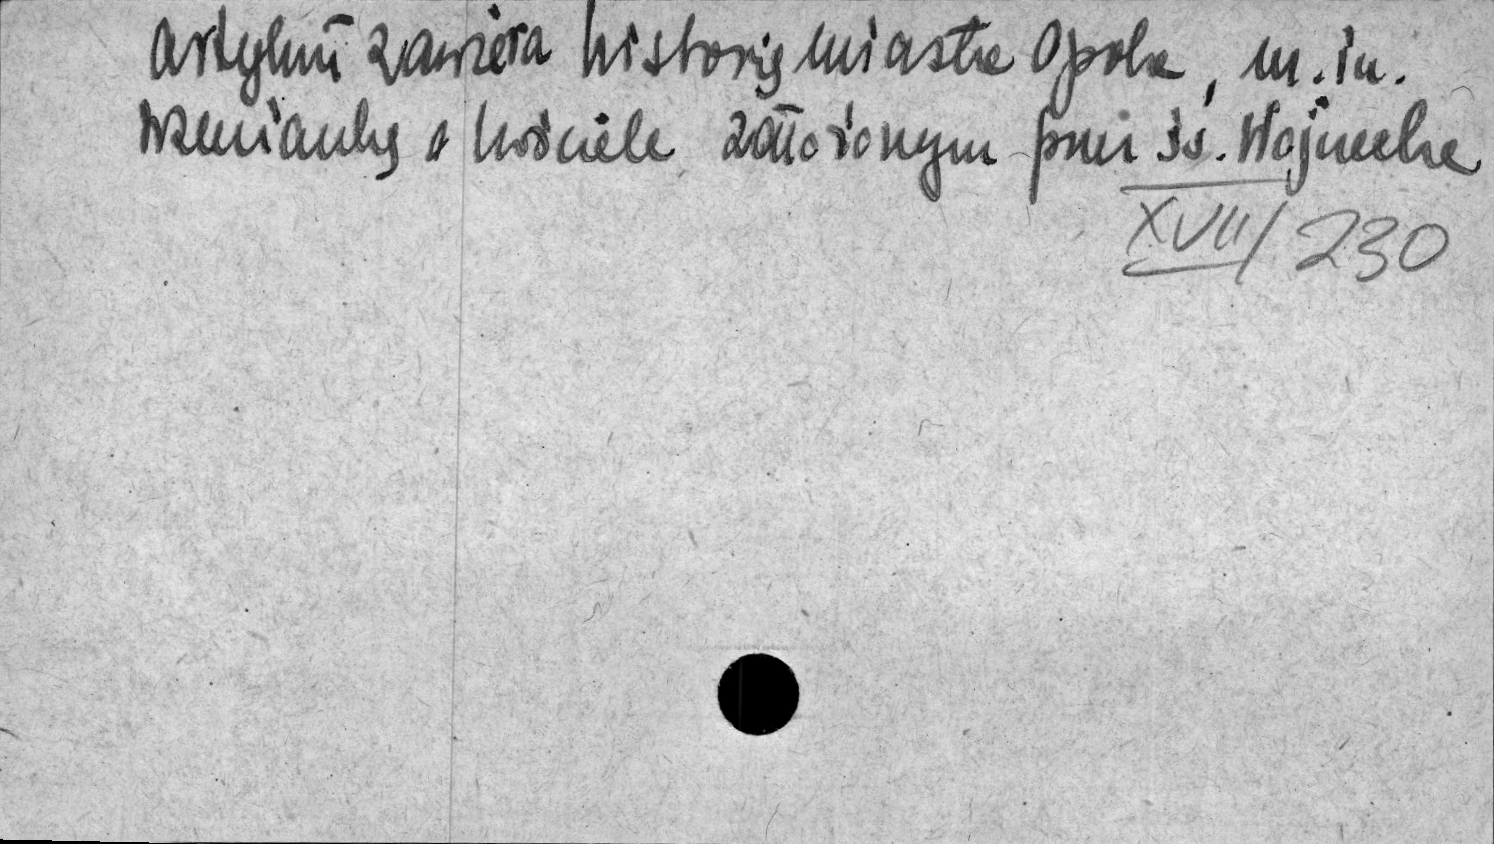 Artykuł zawiera historię miasta Opola, m.in.
wzmiankę o kościele założonym przez św. Wojciecha
XVII/230